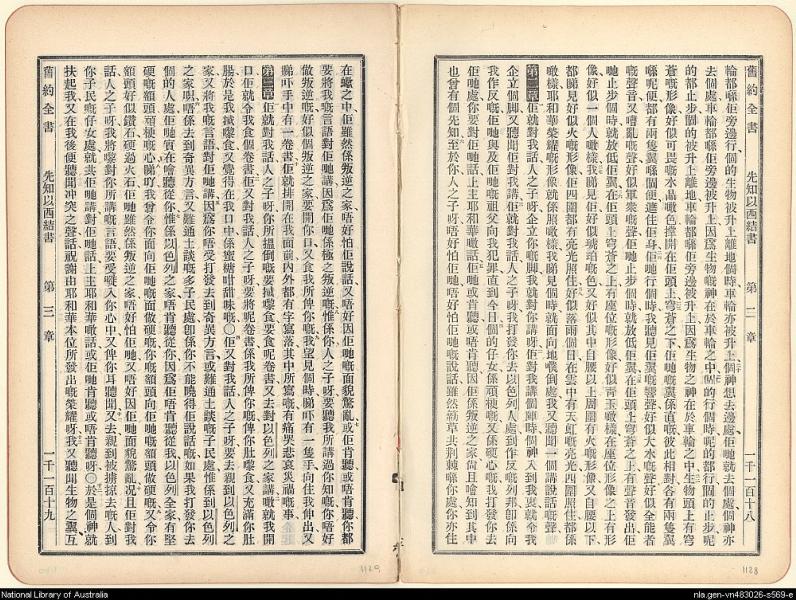 舊約全書 先知以西結書 第二章 一千一百十八
輪都喺佢旁邊行個的生物被升上離地個時車輪亦被升上個神想去邊處佢哋就去個處神亦
去個處車輪都喺佢旁邊被升上因爲生物嘅神在於車輪之中個的行個時呢的都行個的止步呢
的都止步個的被升上離地車輪都喺佢旁邊被升上因爲生物之神在於車輪之中生物頭上有穹
蒼嘅形像好似可畏嘅水晶嘅色撑開在佢頭上穹蒼之下佢哋嘅翼係直嘅彼此相對各有兩隻翼
喺呢便都有兩隻翼喺個便遮住佢身佢哋行個時我聽見佢翼嘅響聲好似大水嘅聲好似全能者
嘅聲音又嘈亂嘅聲好似軍衆嘅聲佢哋止步個時就放低佢翼在佢頭上穹蒼之上有聲音發出佢
哋止步個時就放低佢翼在佢頭上穹蒼之上有座位嘅形像好似青玉噉樣在座位形像之上有形
像好似一個人噉樣我睇見有好似琥珀嘅色又好似其中自腰以上周圍有火嘅形像又自腰以下
都睇見好似火嘅形像佢四圍都有亮光照住好似落雨個日在雲中有天虹嘅亮光四圍照住都係
噉樣耶和華榮耀嘅形像就係照噉樣我睇見個時就面向地嘅倒處我又聽聞一個講說話嘅聲
第二章佢就對我話人之子呀企立你嘅脚我就對你講呀佢對我講個陣時個神入到我裏就令我
企立個脚又聽聞佢對我講佢就對我話人之子呀我打發你去以色列人處到作反嘅列邦卽係向
我作反嘅佢哋與及佢哋嘅祖父向我犯罪直到今日個的仔女係頑梗又係硬心嘅我打發你去
佢哋處你要對佢哋話主耶和華噉話佢哋或肯聽或唔肯聽因佢係叛逆之家尚且噲知到其中
也曾有個先知至於你人之子呀唔好怕佢哋唔好怕佢哋嘅說話雖然蒺藜共荆棘喺你處你亦住
在蠍之中佢雖然係叛逆之家唔好怕佢說話又唔好因佢哋嘅面貌驚亂或佢肯聽或唔肯聽你都
要將我嘅言語對佢哋講因爲佢哋係極之叛逆嘅惟係你人之子呀要聽我所講過你知嘅你唔好
做叛逆嘅好似個叛逆之家要開你口又食我所俾你嘅我望見個時睇吓有一隻手向住我伸出又
睇吓手中有一卷書佢就排開在我面前內外都有字寫落其中所寫嘅有痛哭悲哀災禍嘅事
第三章佢就對我話人之子呀你所搵倒嘅要食呢卷書又去對以色列之家講噉就我開
口佢就令我食個卷書佢又對我話人之子呀要將呢卷書係我所俾你嘅俾你肚食又充滿你肚
腸於是我食又覺得在我口中係蜜糖咁甜味嘅〇佢又對我話人之子呀要去親到以色列之
家又將我嘅言語對佢哋講因爲你唔受打發去到奇異方言或難通土談嘅子民處惟係到以色列
之家唎唔係去到奇異方言又難通土談嘅多子民處卽係你不能曉得佢說話嘅如果我打發你去
個的人處佢哋實在噲聽從你惟係以色列之家唔肯聽從你因爲佢唔肯聽從我以色列全家有堅
硬嘅額頭頑梗嘅心睇吖我曾令你面向佢哋嘅面做硬嘅你嘅額頭向佢哋嘅額頭做硬嘅又令你
額頭好似鑽石硬過火石佢哋雖然係叛逆之家唔好怕佢哋又唔好因佢哋面貌驚亂况且佢對我
話人之子呀我將嚟對你所講嘅言語要受入你心中又俾你耳聽聞又去親到被擄掠去嘅人到
你子民嘅仔女處就共佢哋講對佢哋話上主耶和華噉話或佢哋肯聽或唔肯聽呀〇於是個神就
扶起我又在我後便聽聞冲突之聲話祝謝由耶和華本位所發出嘅榮耀呀我又聽聞生物之翼互
舊約全書 先知以西結書 第三章 一千一百十九
1129
1128
National Library of Australia
nla.gen-vn483026-s569-e